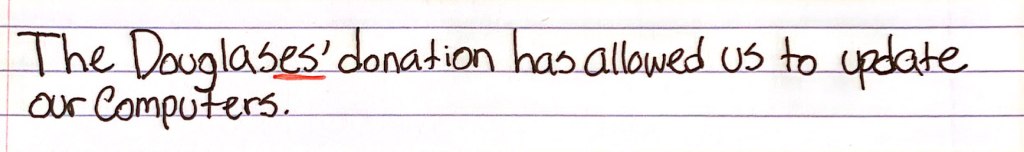 The Douglases' donation has allowed us to update
our Computers.